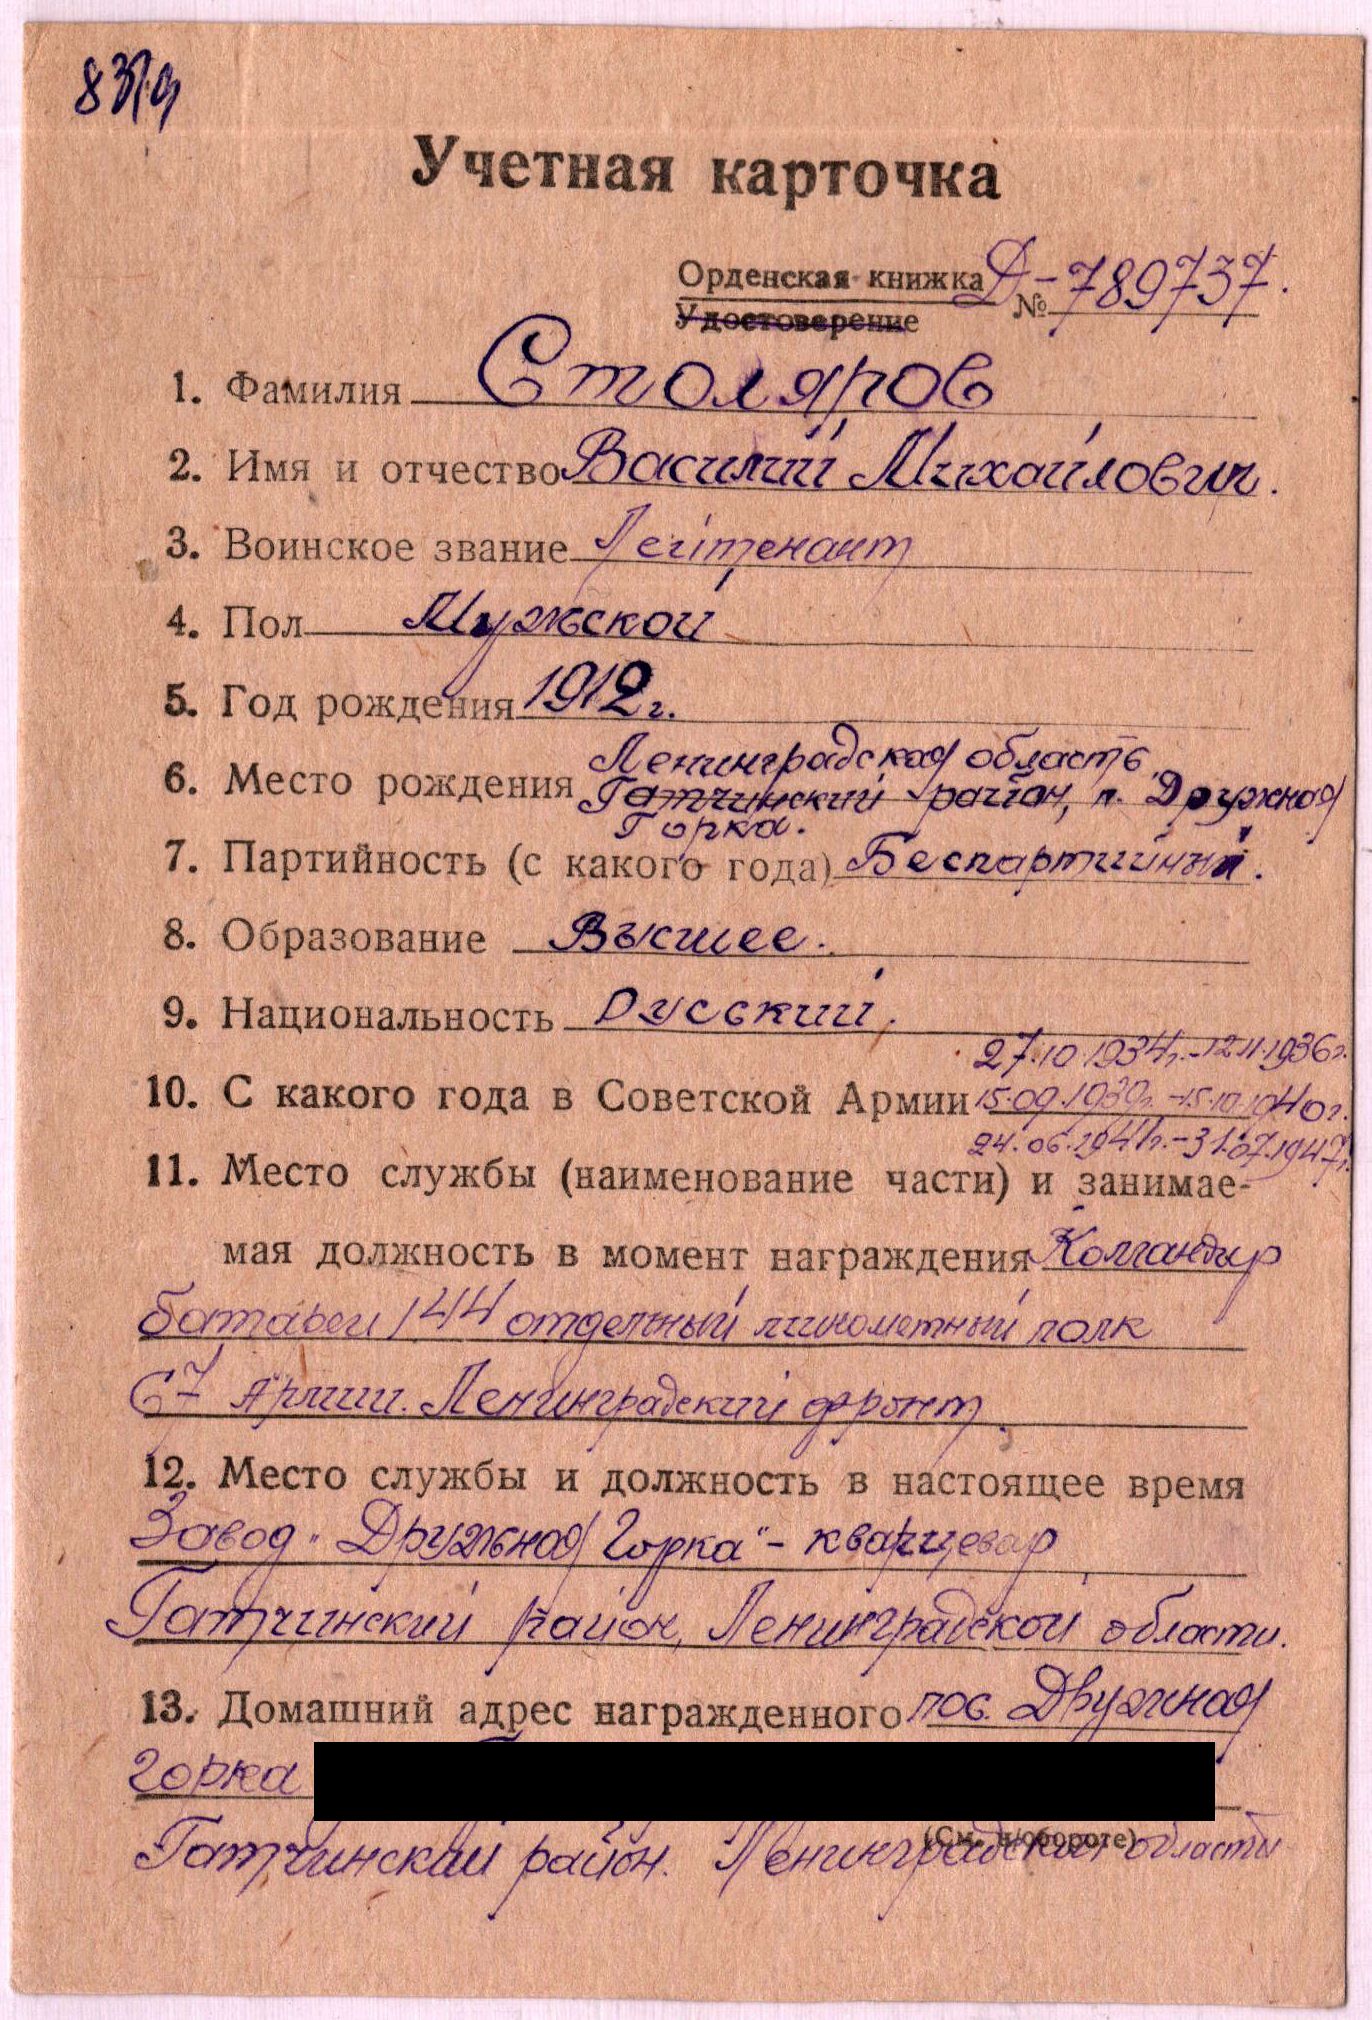 Учетная карточка
Орденская книжка Д-№ 789737.
Удостоверение
1. Фамилия Столяров
2. Имя и отчество Василий Михайлович.
3. Воинское звание Лейтенант
4. Пол Мужской
5. Год рождения 1912 г.
Ленинградская область
6. Место рождения Гатчинский район, п. Дружная
Горка.
7. Партийность (с какого года) Беспартийный.
8. Образование Высшее.
9. Национальность Русский.
27.10 1934 г. - 12.11.1936 г.
10. С какого года в Советской Армии 15.09.1939 г. - 15.10.1940 г.
24.06.1941 г. - 31.07.1947 г.
11. Место службы (наименование части) и занимае-
мая должность в момент награждения Командир
батареи 144 отдельный миномётный полк
67 Армии. Ленинградский фронт.
12. Место службы и должность в настоящее время
Завод "Дружная Горка" - кварцевар
Гатчинский район, Ленинградской области.
13. Домашний адрес награжденного пос. Дружная
Горка
(См. н/обороте)
Гатчинский район. Ленинградской области